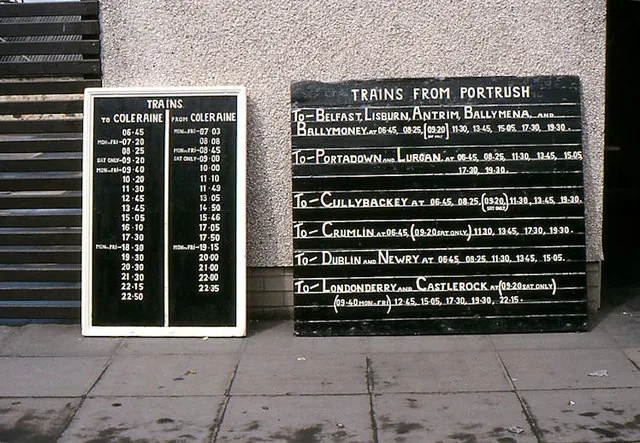 TRAINS
TO COLERAINE
06·45
MON-FRI-07·20
08·25
SAT ONLY-09·20
MON-FRI-09·40
10·20
11·30
12·45
13·45
15·05
16·10
17·30
MON-FRI-18·30
19·30
20·30
21·30
22·15
22·50
FROM COLERAINE
MON-FRI-07·03
08·08
MON-FRI-08·45
SAT ONLY-09·00
10·00
11·10
11·49
13·05
14·50
15·46
17·05
17·50
MON-FRI-19·15
20·00
21·00
22·00
22·35
TRAINS FROM PORTRUSH
TO-BELFAST, LISBURN, ANTRIM, BALLYMENA, AND
BALLYMONEY AT 06·45, 08·25, (09·20 SAT ONLY) 11·30, 13·45, 15·05, 17·30, 19·30.
TO-PORTADOWN AND LURGAN. AT 06·45, 08·25, 11·30, 13·45, 15·05
17·30, 19·30.
TO-CULLYBACKEY AT 06·45, 08·25, (09·20 SAT ONLY) 11·30, 13·45, 19·30.
TO-CRUMLIN AT 06·45, (09·20 SAT ONLY,) 11·30, 13·45, 17·30, 19·30.
TO-DUBLIN AND NEWRY AT 06·45, 08·25, 11·30, 13·45, 15·05.
TO-LONDONDERRY AND CASTLEROCK AT (09·20 SAT ONLY)
(09·40 MON-FRI) 12·45, 15·05, 17·30, 19·30, 22·15.